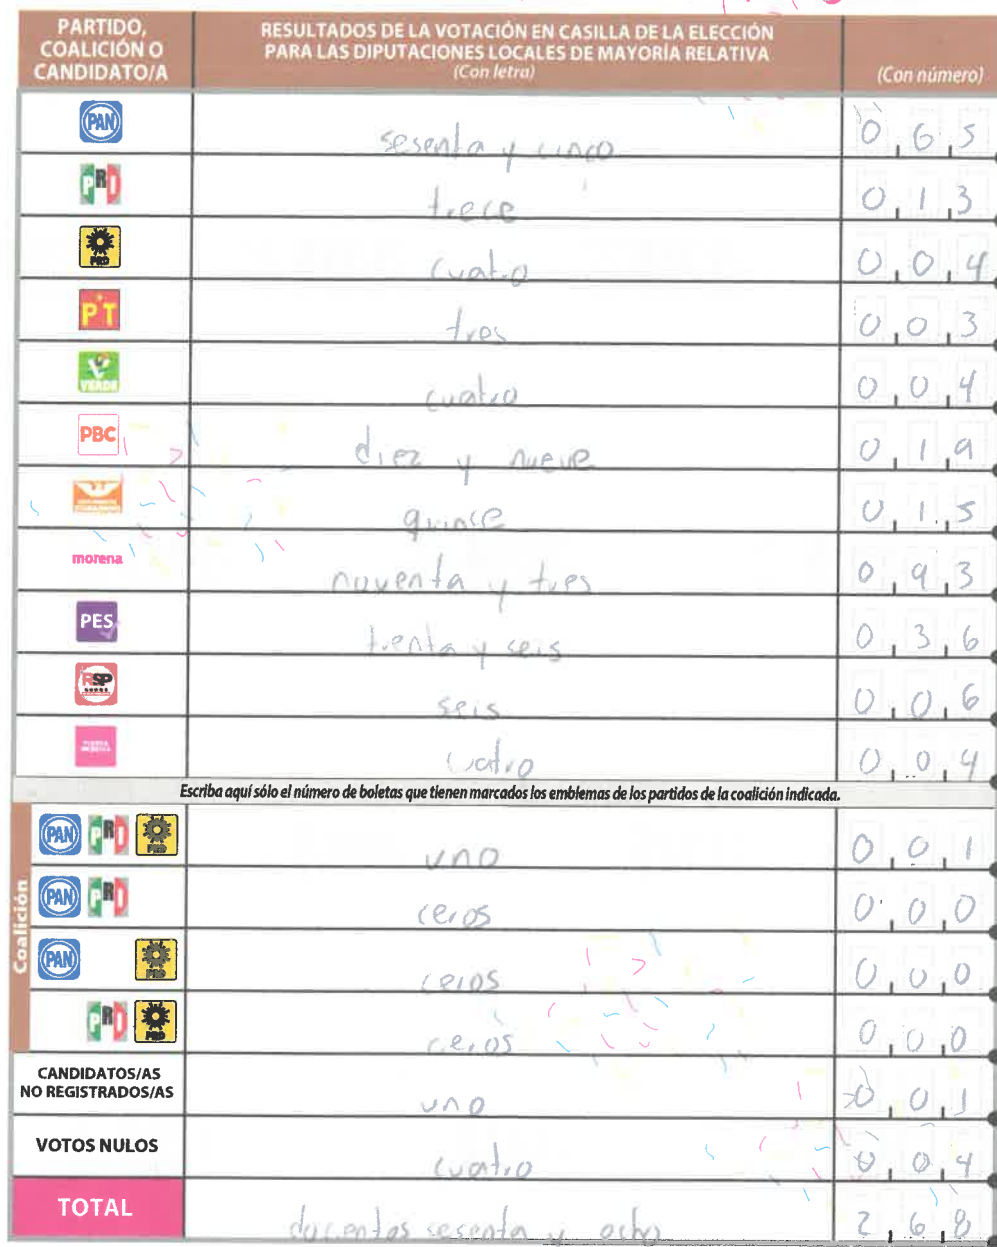 PARTIDO, COALICIÓN O CANDIDATO/A
RESULTADOS DE LA VOTACIÓN EN CASILLA DE LA ELECCIÓN
PARA LAS DIPUTACIONES LOCALES DE MAYORÍA RELATIVA
(Con letra)
(Con número)
PAN sesenta y cinco 0 6 5
PRI trece 0 1 3
PRD cuatro 0 0 4
PT tres 0 0 3
VERDE cuatro 0 0 4
PBC diez y nueve 0 1 9
quince 0 1 5
morena noventa y tres 0 9 3
PES trenta y seis 0 3 6
RSP seis 0 0 6
cuatro 0 0 4
Escriba aquí sólo el número de boletas que tienen marcados los emblemas de los partidos de la coalición indicada.
Coalición
PAN PRI PRD uno 0 0 1
PAN PRI ceros 0 0 0
PAN PRD ceros 0 0 0
PRI PRD ceros 0 0 0
CANDIDATOS/AS NO REGISTRADOS/AS uno 0 0 1
VOTOS NULOS cuatro 0 0 4
TOTAL docientos sesenta y ocho 2 6 8